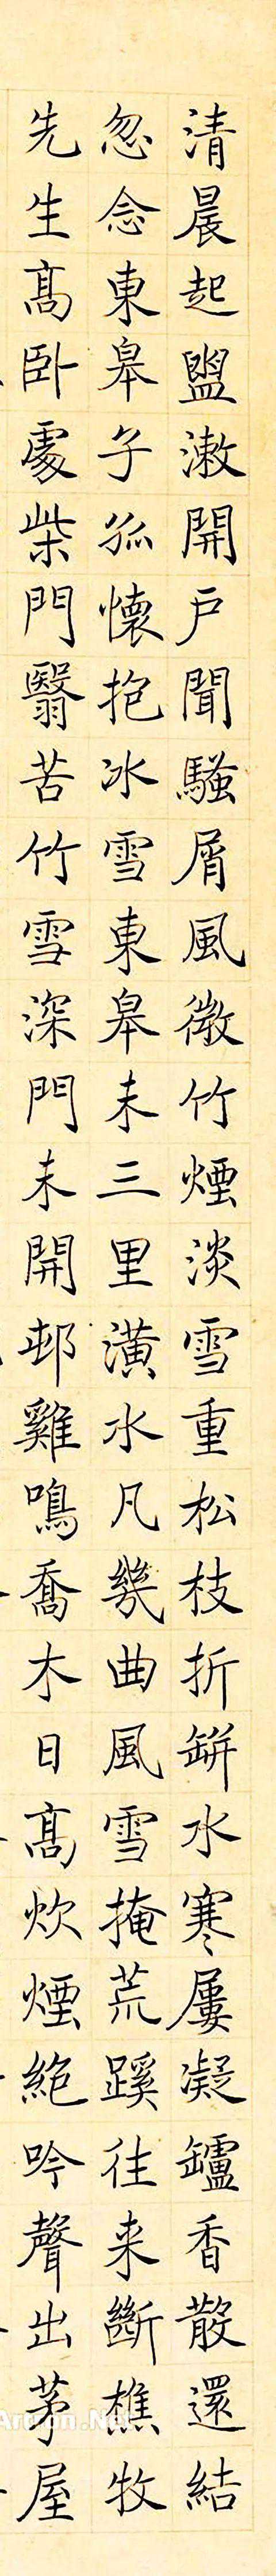 清晨起盥漱開戶聞騷屑風微竹煙淡雪重松枝折缾水寒屢凝鑪香散還結
忽念東皋子孤懷抱冰雪東皋未三里潢水凡幾曲風雪掩荒蹊往来斷樵牧
先生高卧處柴門翳苦竹雪深門未開邨雞鳴喬木日高炊煙絕吟聲出茅屋